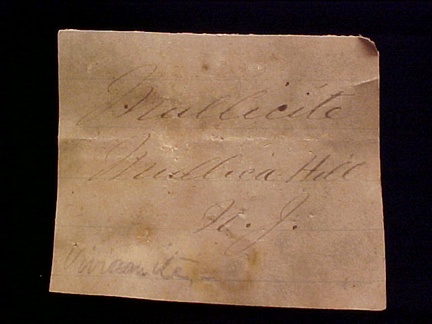 Mullicite
Mullica Hill
N. J.
Vivianite